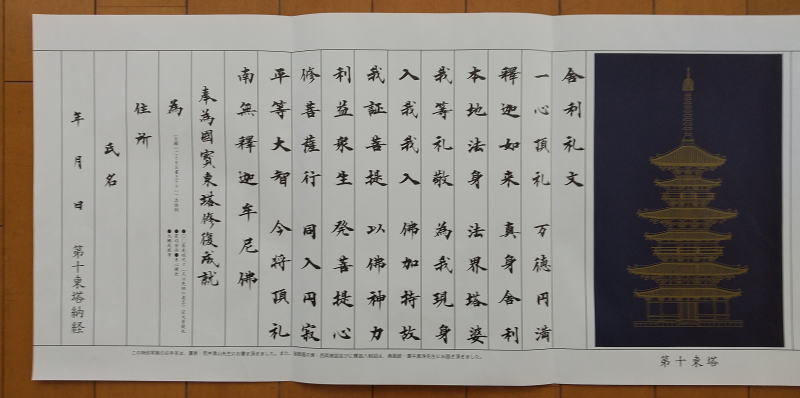 舎利礼文
一心頂礼 万徳円満
釋迦如来 真身舎利
本地法身 法界塔婆
我等礼敬 為我現身
入我我入 佛加持故
我証菩提 以佛神力
利益衆生 発菩提心
修菩薩行 同入円寂
平等大智 今将頂礼
南無釋迦牟尼佛
奉為國寳東塔修復成就
為
住所
氏名
年 月 日 第十東塔納経
第十東塔